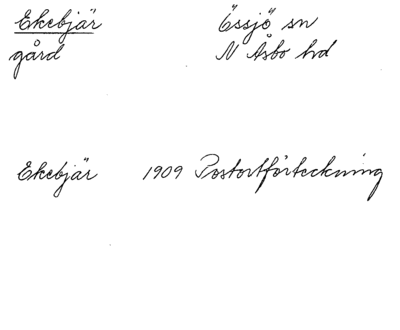 Ekebjär Össjö sn
gård N Åsbo hd
Ekebjär 1909 Postortförteckning